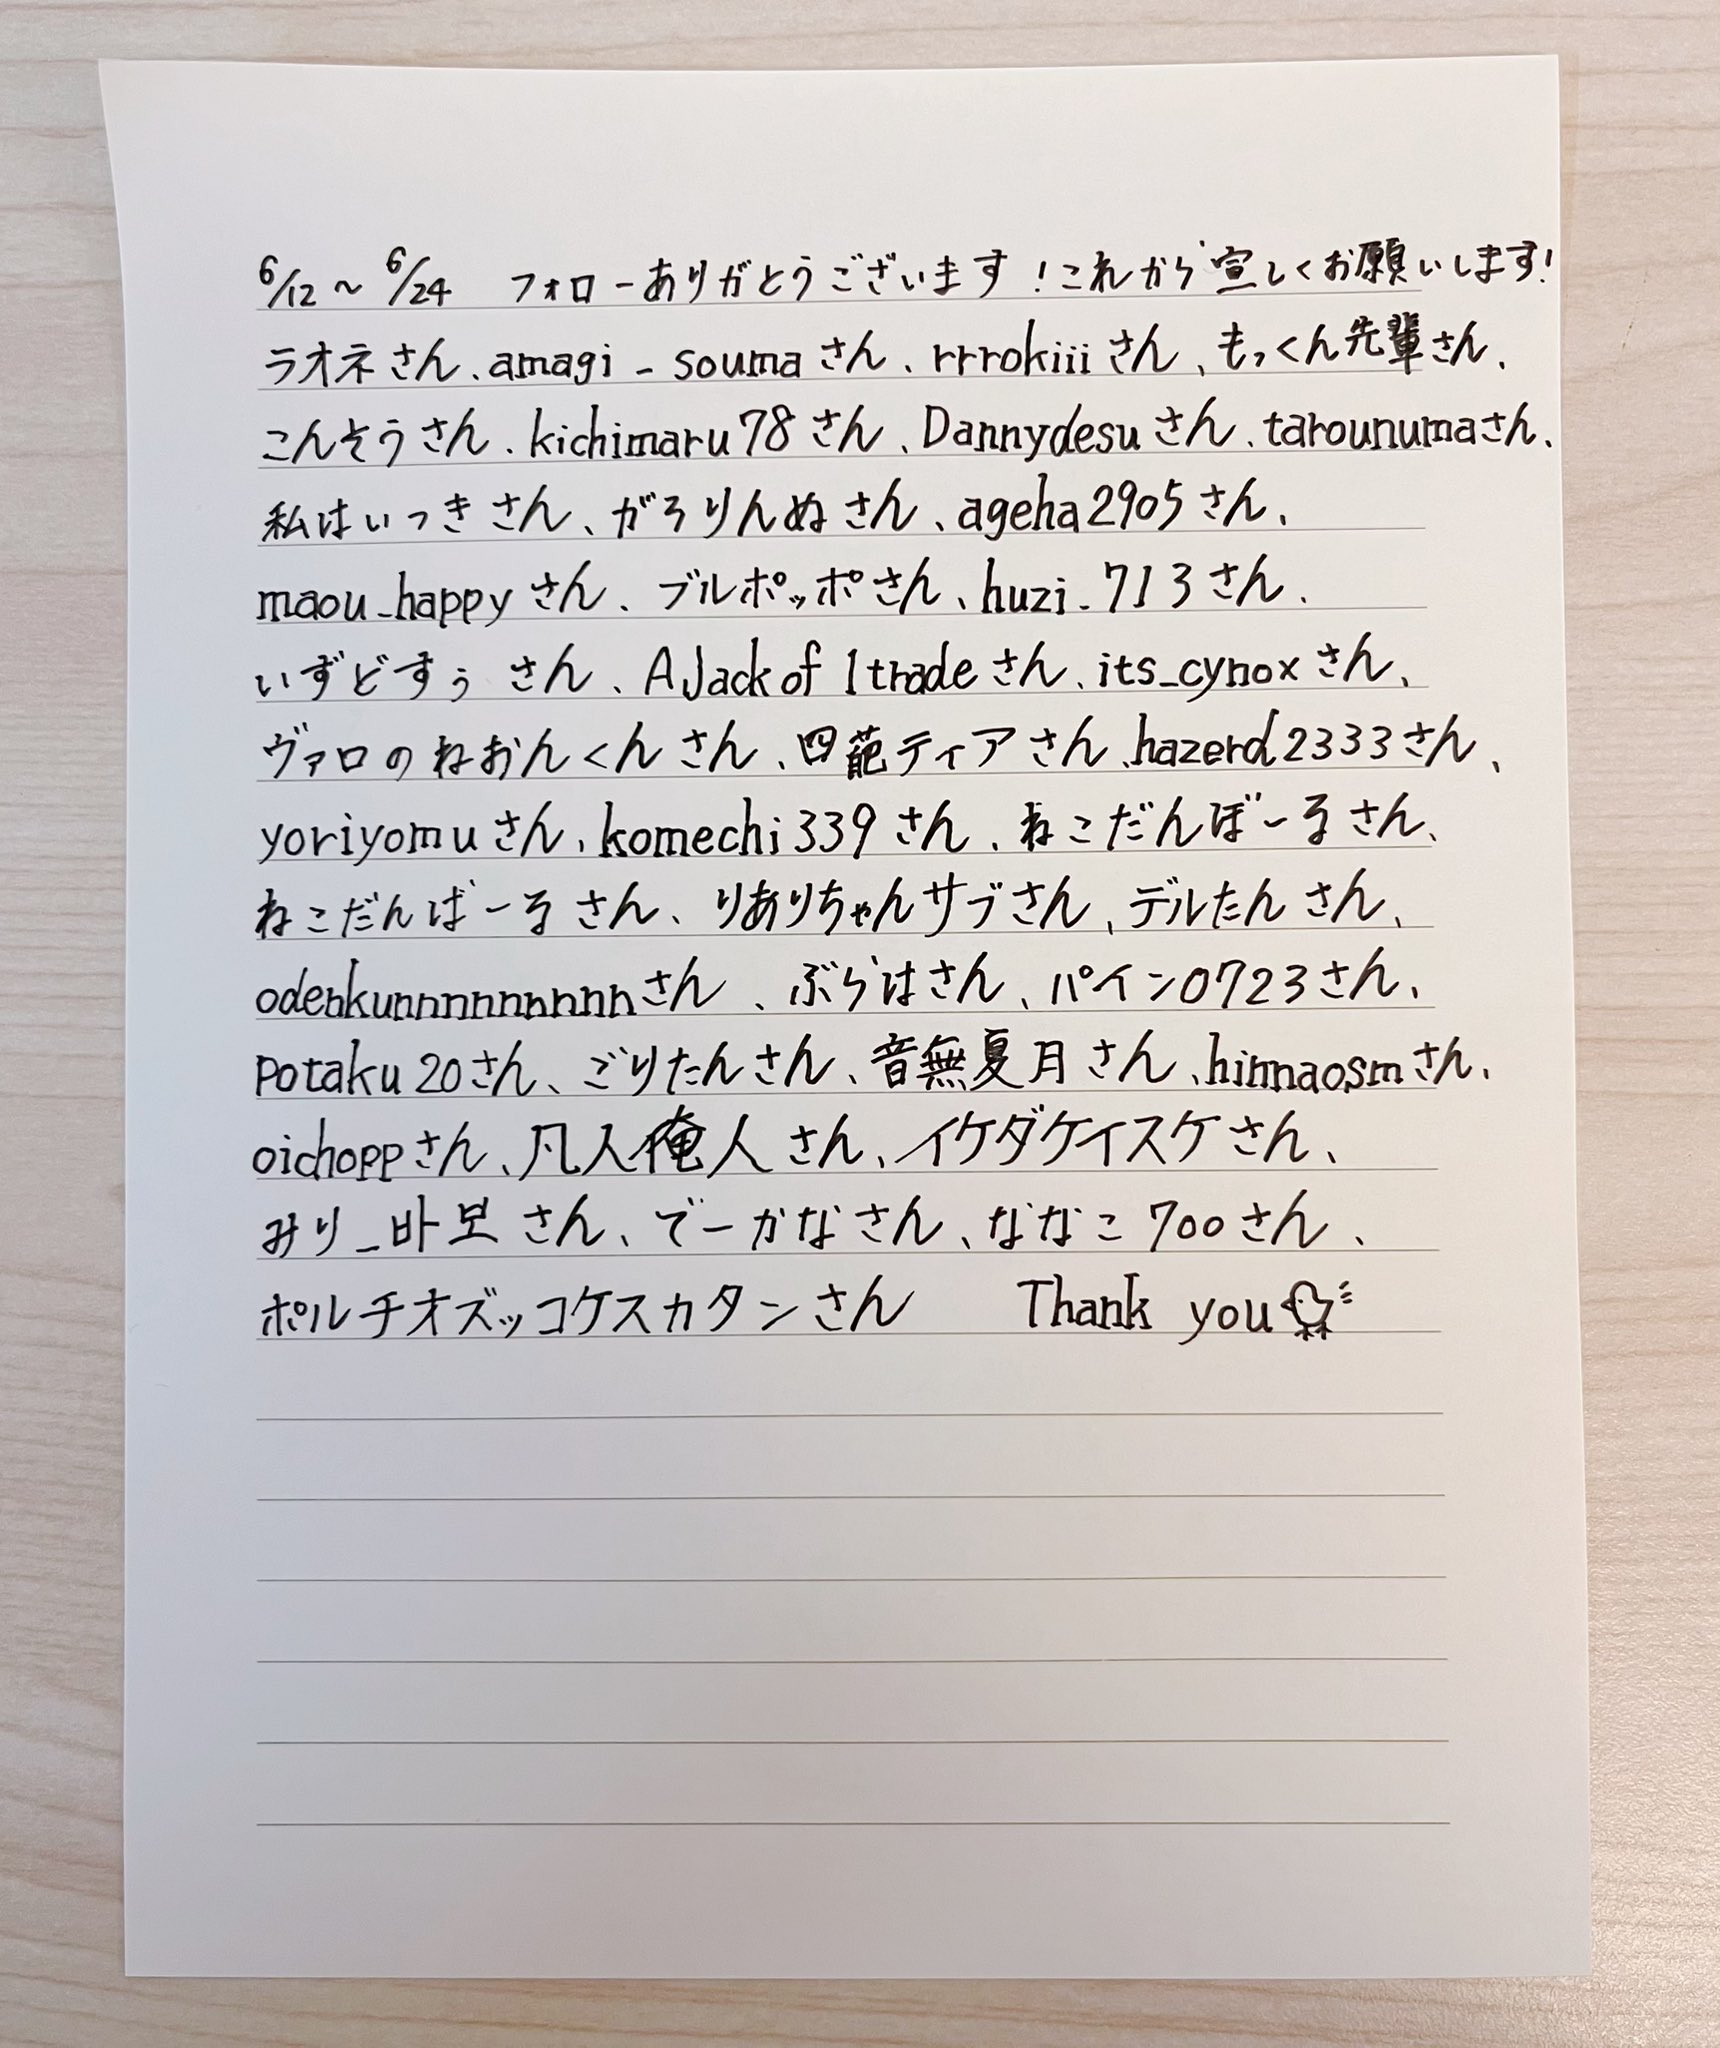 6/12～6/24 フォローありがとうございます！これから宜しくお願いします！
ラオネさん、amagi_soumaさん、rrrokiiiさん、もっくん先輩さん、
こんそうさん、kichimaru78さん、Dannydesuさん、tarounumaさん、
私はいっきさん、がろりんぬさん、ageha2905さん、
maou_happyさん、ブルポッポさん、huzi_713さん、
いずどすぅさん、AJack of 1tradeさん、its_cynoxさん、
ヴァロのねおんくんさん、四葩ティアさん、hazerd2333さん、
yoriyomuさん、komechi339さん、ねこだんぼーるさん、
ねこだんばーるさん、りありちゃんサブさん、デルたんさん、
odenkunnnnnnnnnnさん、ぶらはさん、パイン0723さん、
Potaku20さん、ごりたんさん、音無夏月さん、hinnaosmさん、
oichoppさん、凡人俺人さん、イケダケイスケさん、
みり_바보さん、でーかなさん、ななこ700さん、
ポルチオズッコケスカタンさん Thank you